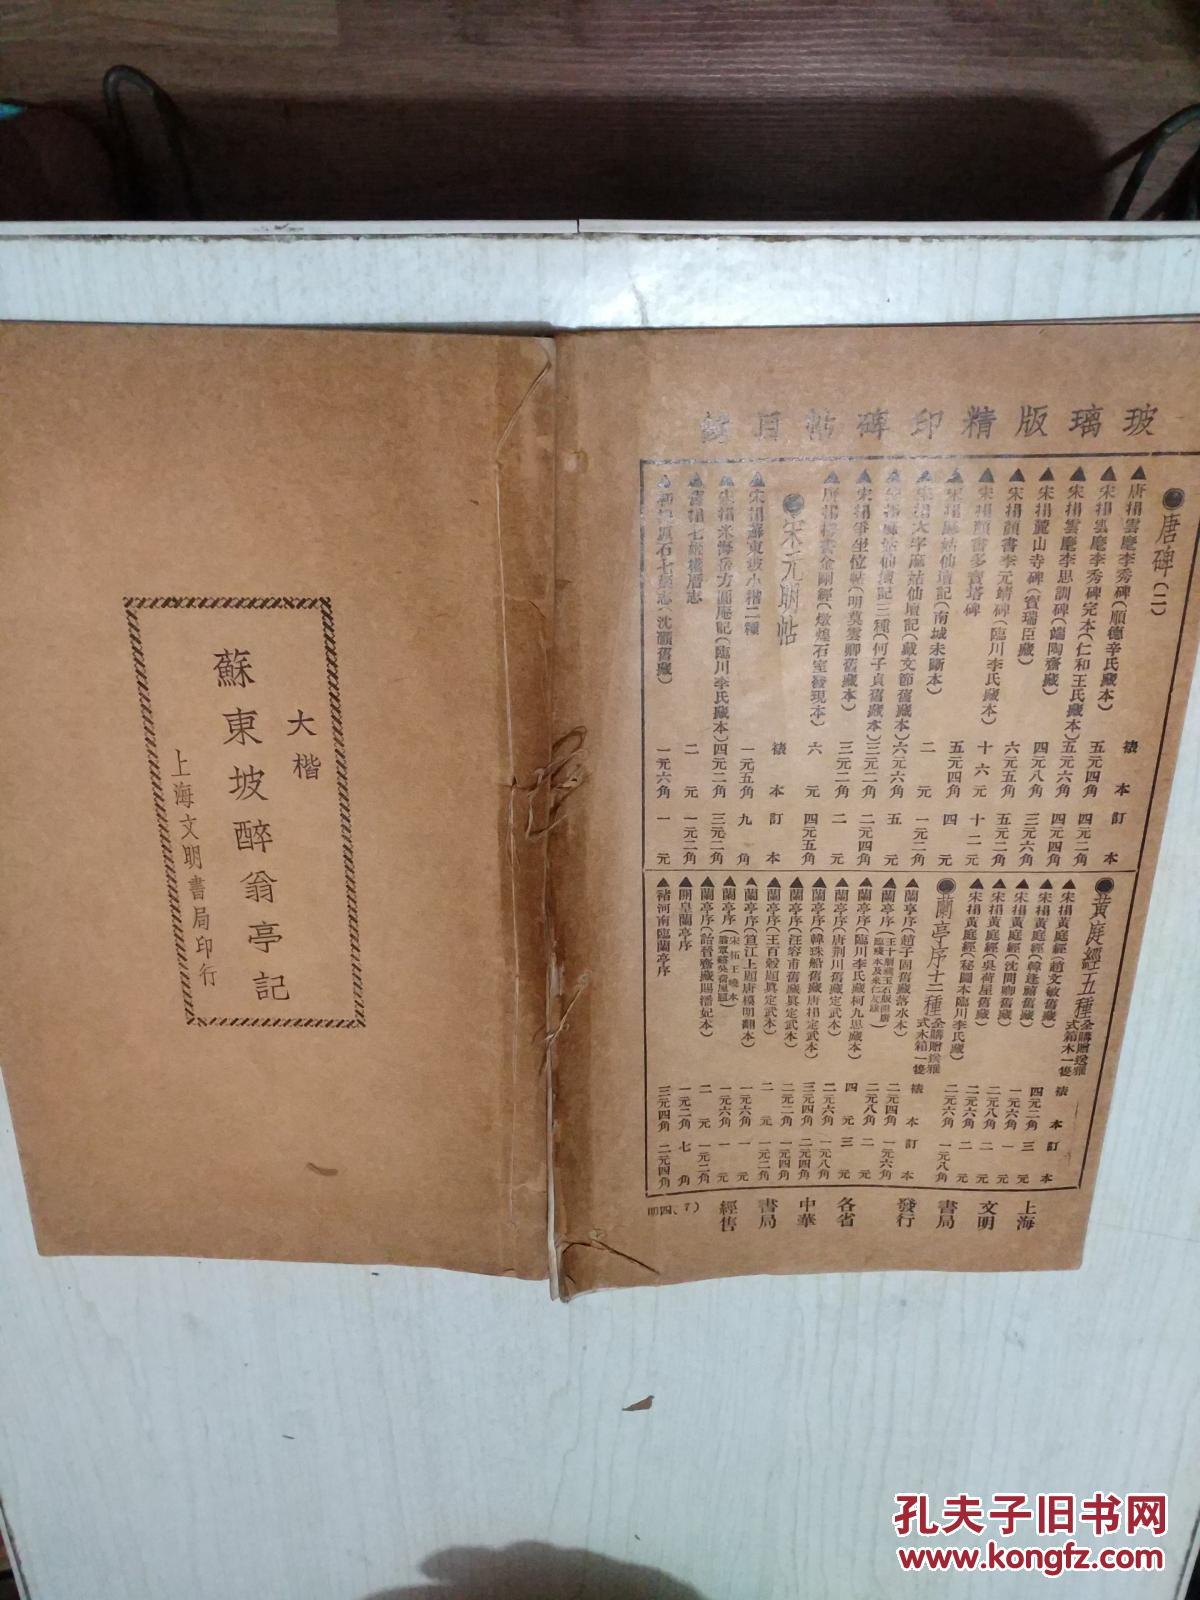 玻璃版精印碑帖目錄
唐碑(二)
裱本 訂本
唐搨雲麾李秀碑(順德辛氏藏本) 五元四角 四元二角
宋搨雲麾李秀碑完本(仁和王氏藏本) 五元六角 四元四角
宋搨雲麾李思訓碑(端陶齋藏) 四元八角 三元六角
宋搨麓山寺碑(寶瑞臣藏) 六元五角 五元二角
宋搨顏書李元靖碑(臨川李氏藏本) 十六元 十二元
宋搨顏書多寶塔碑 五元四角 四元
宋搨麻姑仙壇記(南城未斷本) 二元 一元二角
宋搨大字麻姑仙壇記(戴文節舊藏本) 六元六角 五元
宋搨麻姑仙壇記三種(何子貞舊藏本) 三元二角 二元四角
宋搨爭坐位帖(明莫雲卿舊藏本) 三元二角 二元
唐搨柳書金剛經(燉煌石室發現本) 六元 四元五角
宋元明帖
裱本 訂本
宋搨蘇東坡小楷二種 一元五角 九角
宋搨米海岳方圓庵記(臨川李氏藏本) 四元二角 三元二角
舊搨七姬權厝志 二元 一元二角
石七姬志(沈韻舊藏) 一元六角 一元
黃庭經五種 全購贈送雅式木箱一隻
裱本 訂本
宋搨黃庭經(趙文敏舊藏) 四元二角 三元
宋搨黃庭經(韓逢禧舊藏) 一元六角 一元
宋搨黃庭經(沈問卿舊藏) 二元八角 二元
宋搨黃庭經(吳荷屋舊藏) 二元六角 二元
宋搨黃庭經(秘閣本臨川李氏藏) 二元六角 一元八角
蘭亭序十二種 全購贈送雅式木箱一隻
裱本 訂本
蘭亭序(趙子固舊藏落水本) 二元四角 一元六角
蘭亭序 二元八角 二元
蘭亭序(臨川李氏藏柯九思藏本) 四元 三元
蘭亭序(唐荊川舊藏定武本) 二元六角 一元八角
蘭亭序(韓珠船舊藏唐搨定武本) 三元四角 二元四角
蘭亭序(汪容甫舊藏眞定武本) 二元二角 一元四角
蘭亭序(王百穀題眞定武本) 二元 一元二角
蘭亭序(笪江上題唐模明翻本) 一元六角 一元
蘭亭序(宋拓王曉本翁覃谿吳荷屋題) 一元六角 一元
蘭亭序(詒晉齋藏賜潘妃本) 二元 一元二角
開皇蘭亭序 一元二角 七角
褚河南臨蘭亭序 三元四角 二元四角
上海文明書局發行
各省中華書局經售
大楷
蘇東坡醉翁亭記
上海文明書局印行
孔夫子旧书网
www.kongfz.com